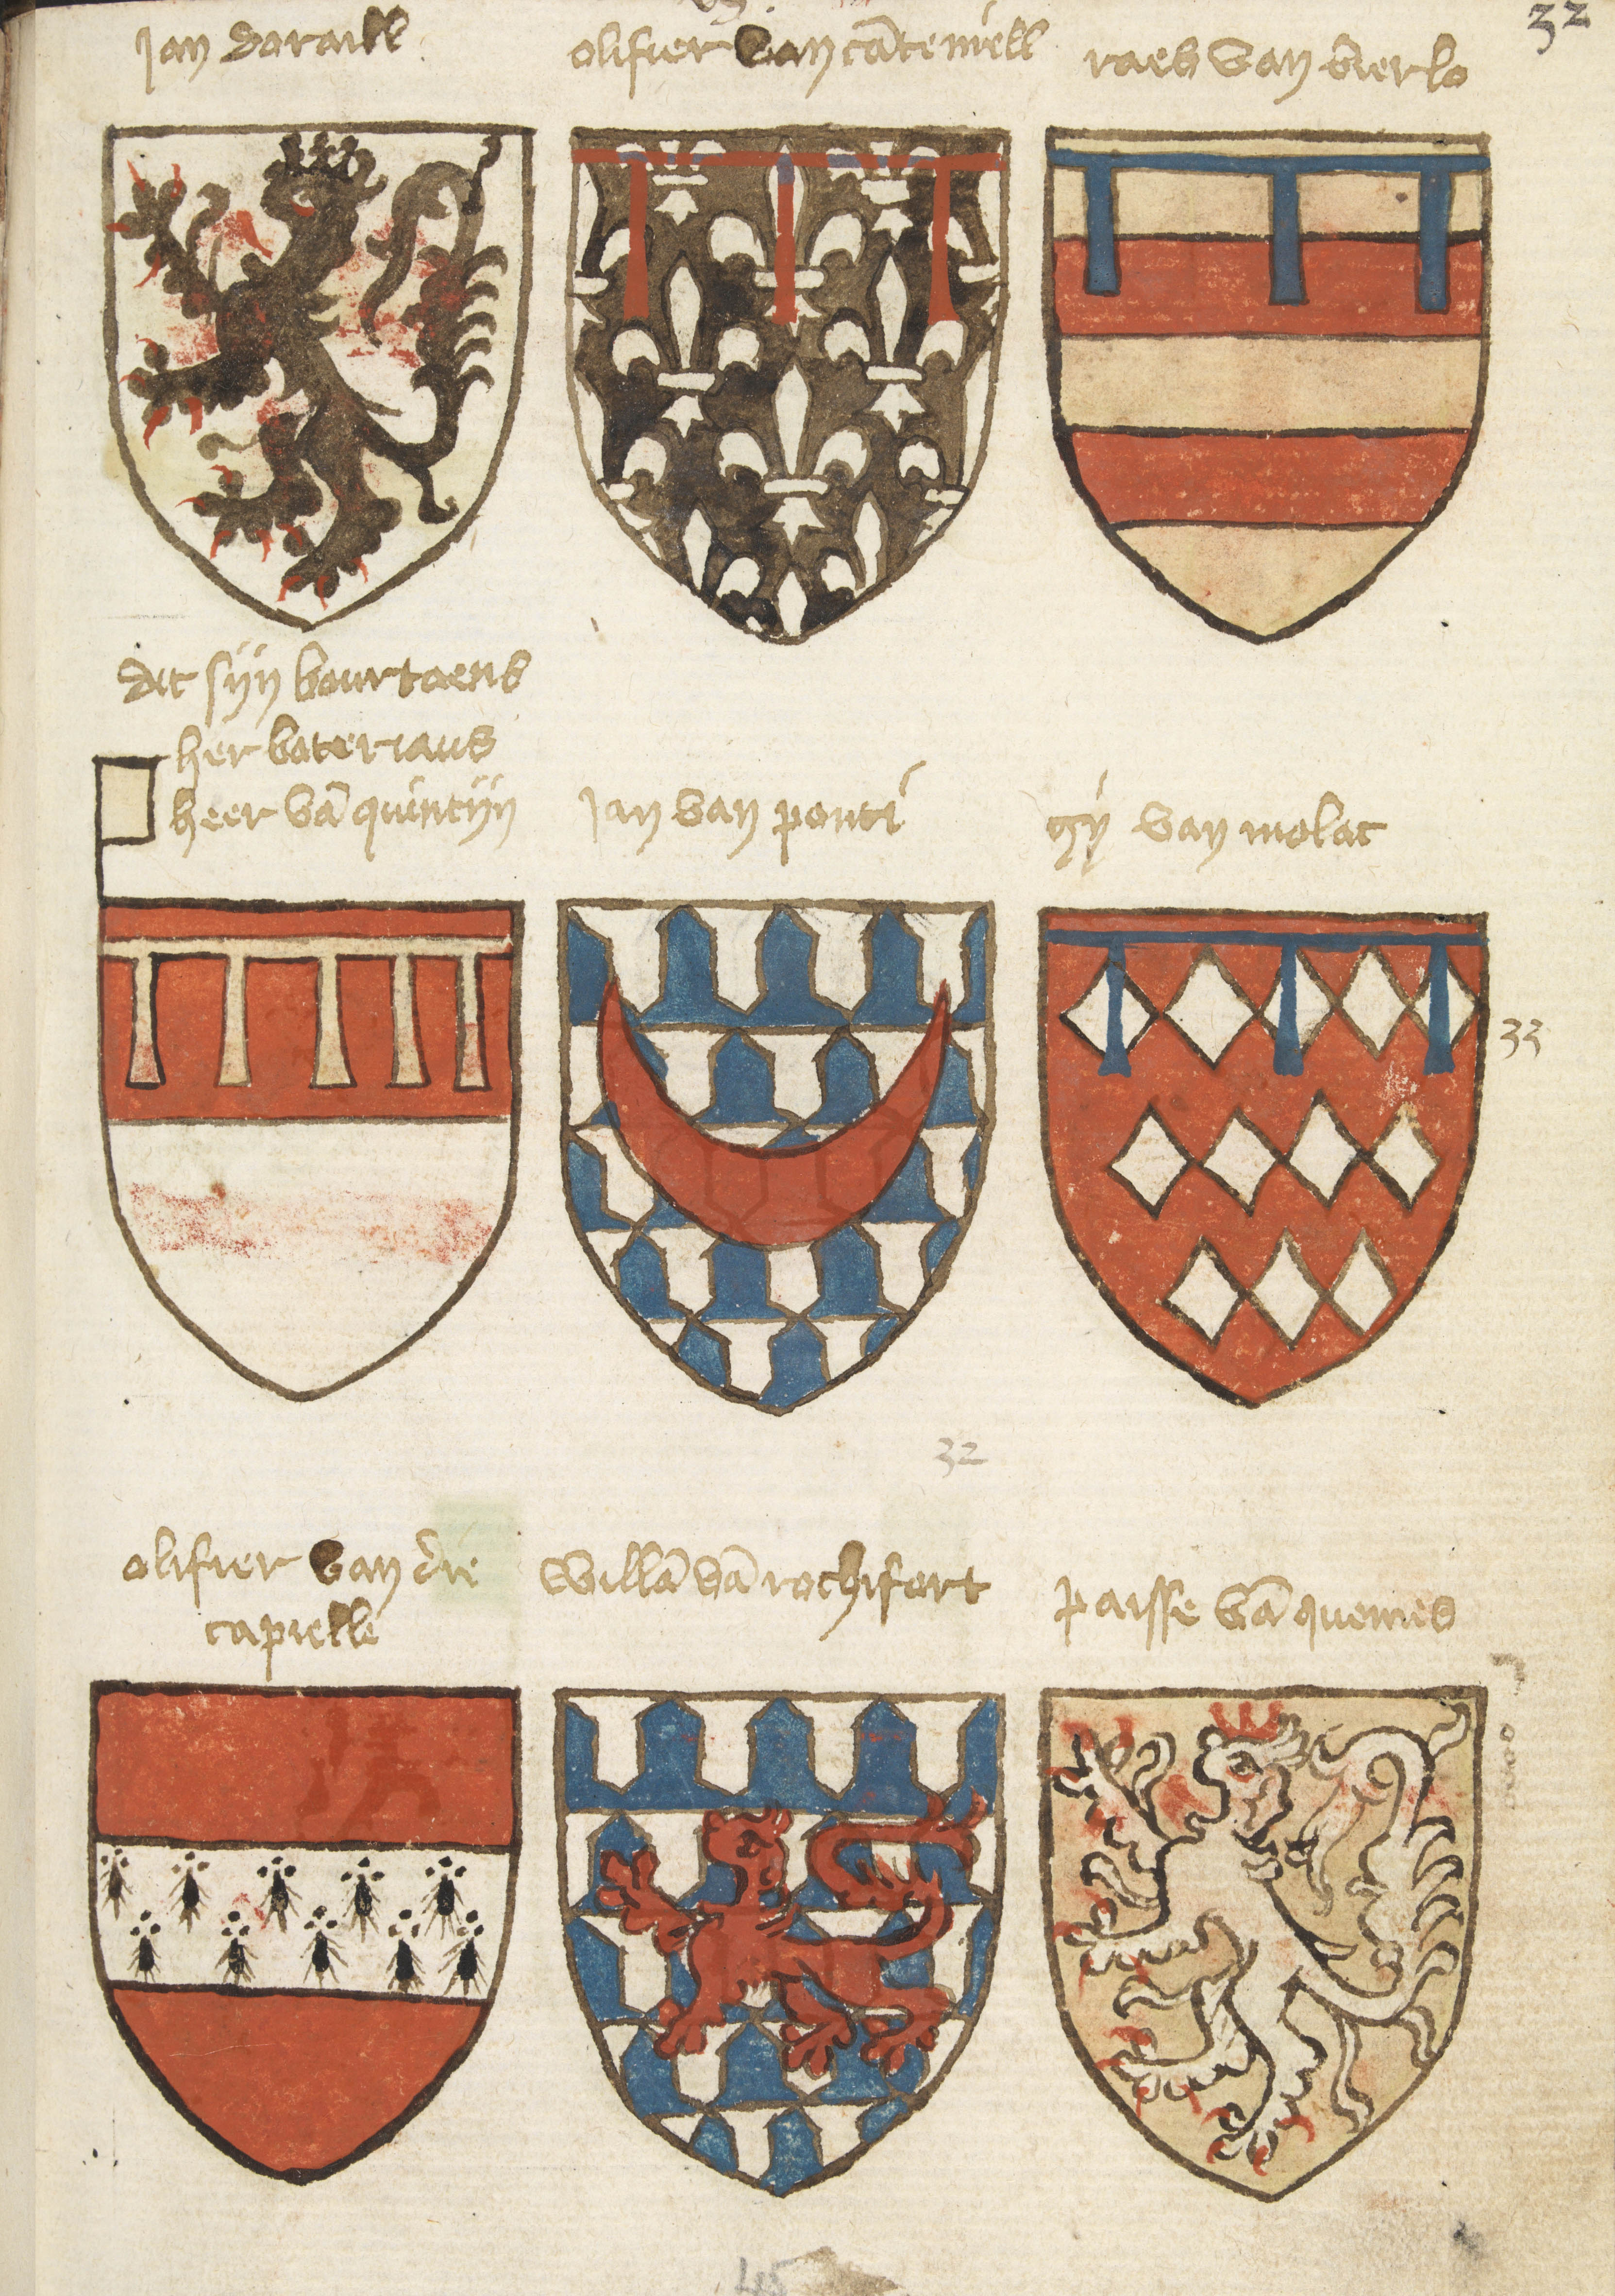 32
Jan daraill
olifier van cātemell
raes van vierlo
dit sijn bourtoens
her boteriaus
heer vā quintijn
Jan van ponti
gij van molac
33
32
olifier van die
capielle
Willā vā rochifort
paisse vā quemes
45